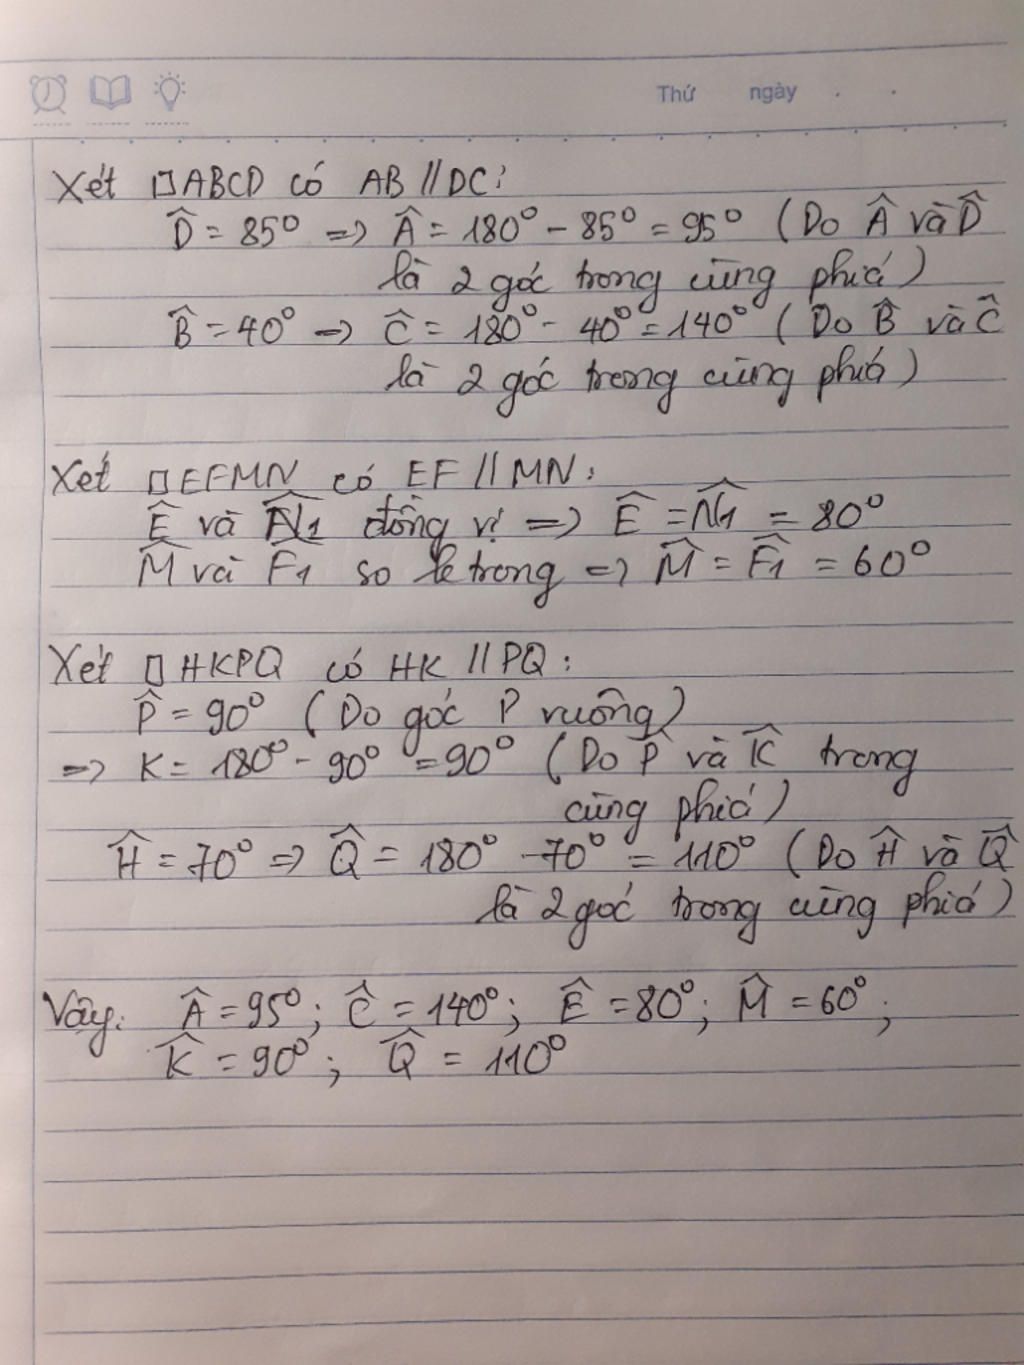 Thứ ngày . .
Xét □ABCD có AB // DC:
D̂ = 85° => Â = 180° - 85° = 95° (Do Â và D̂
là 2 góc trong cùng phiá)
B̂ = 40° => Ĉ = 180° - 40° = 140° (Do B̂ và Ĉ
là 2 góc trong cùng phiá)
Xét □EFMN có EF // MN:
Ê và N̂1 đồng vị => Ê = N̂1 = 80°
M̂ và F̂1 so le trong => M̂ = F̂1 = 60°
Xét □HKPQ có HK // PQ:
P̂ = 90° (Do góc P vuông)
=> K = 180° - 90° = 90° (Do P̂ và K̂ trong
cùng phiá)
Ĥ = 70° => Q̂ = 180° - 70° = 110° (Do Ĥ và Q̂
là 2 góc trong cùng phiá)
Vậy: Â = 95°; Ĉ = 140°; Ê = 80°; M̂ = 60°;
K̂ = 90°; Q̂ = 110°